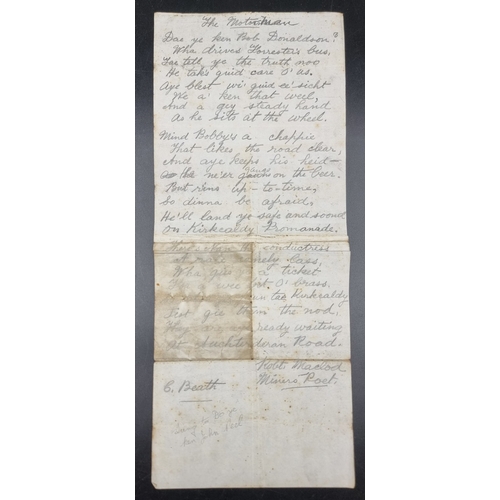 The Motorman
Dae ye ken Bob Donaldson?
Wha drives Forrester's bus,
Tae tell ye the truth noo
He tak's guid care o' us.
Aye blest wi' guid ee'sicht
We a' ken that weel,
And a gey steady hand
As he sits at the wheel.
Mind Bobby's a chappie
That likes the road clear,
And aye keeps his heid—
ne'er on the beer.
But rins up-to-time,
So dinna be afraid,
He'll land ye safe and sound
On Kirkcaldy Promanade.
conductress
lass,
Wha a ticket
wee o' brass,
tae Kirkcaldy
Just gie them the nod,
They ready waiting
At Auchterderran Road.
Robt Macleod
C. Beath
Miners Poet.